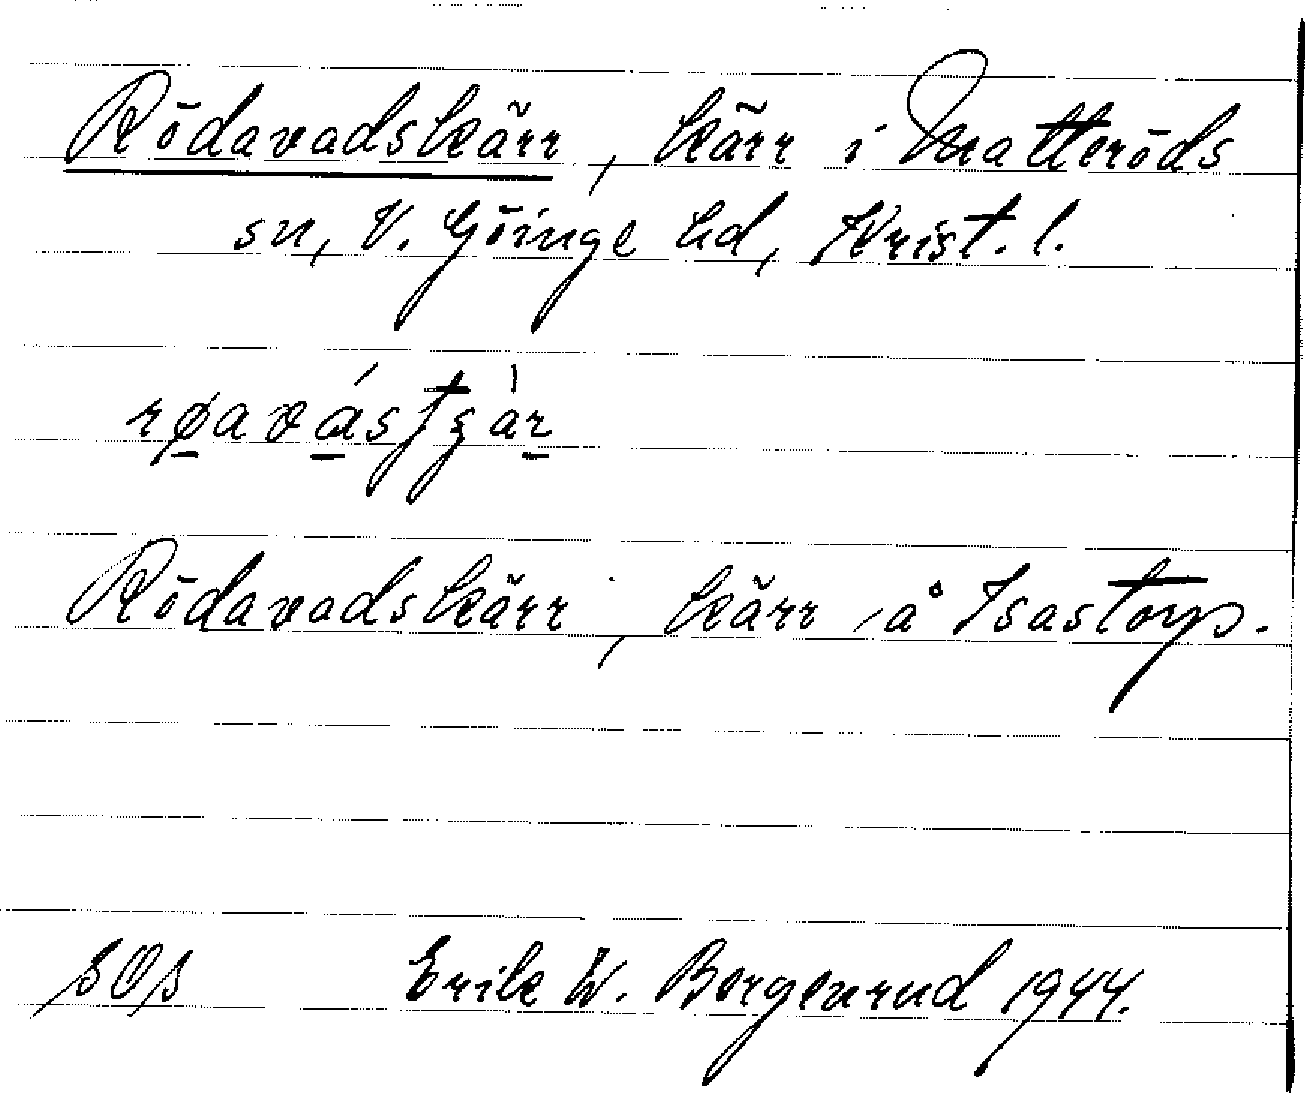 Rödavadskärr, kärr i Matteröds
sn, V. Göinge hd, Krist. l.
Rödavadskärr, kärr å Isastorp.
SOS Erik W. Bergenrud 1944.